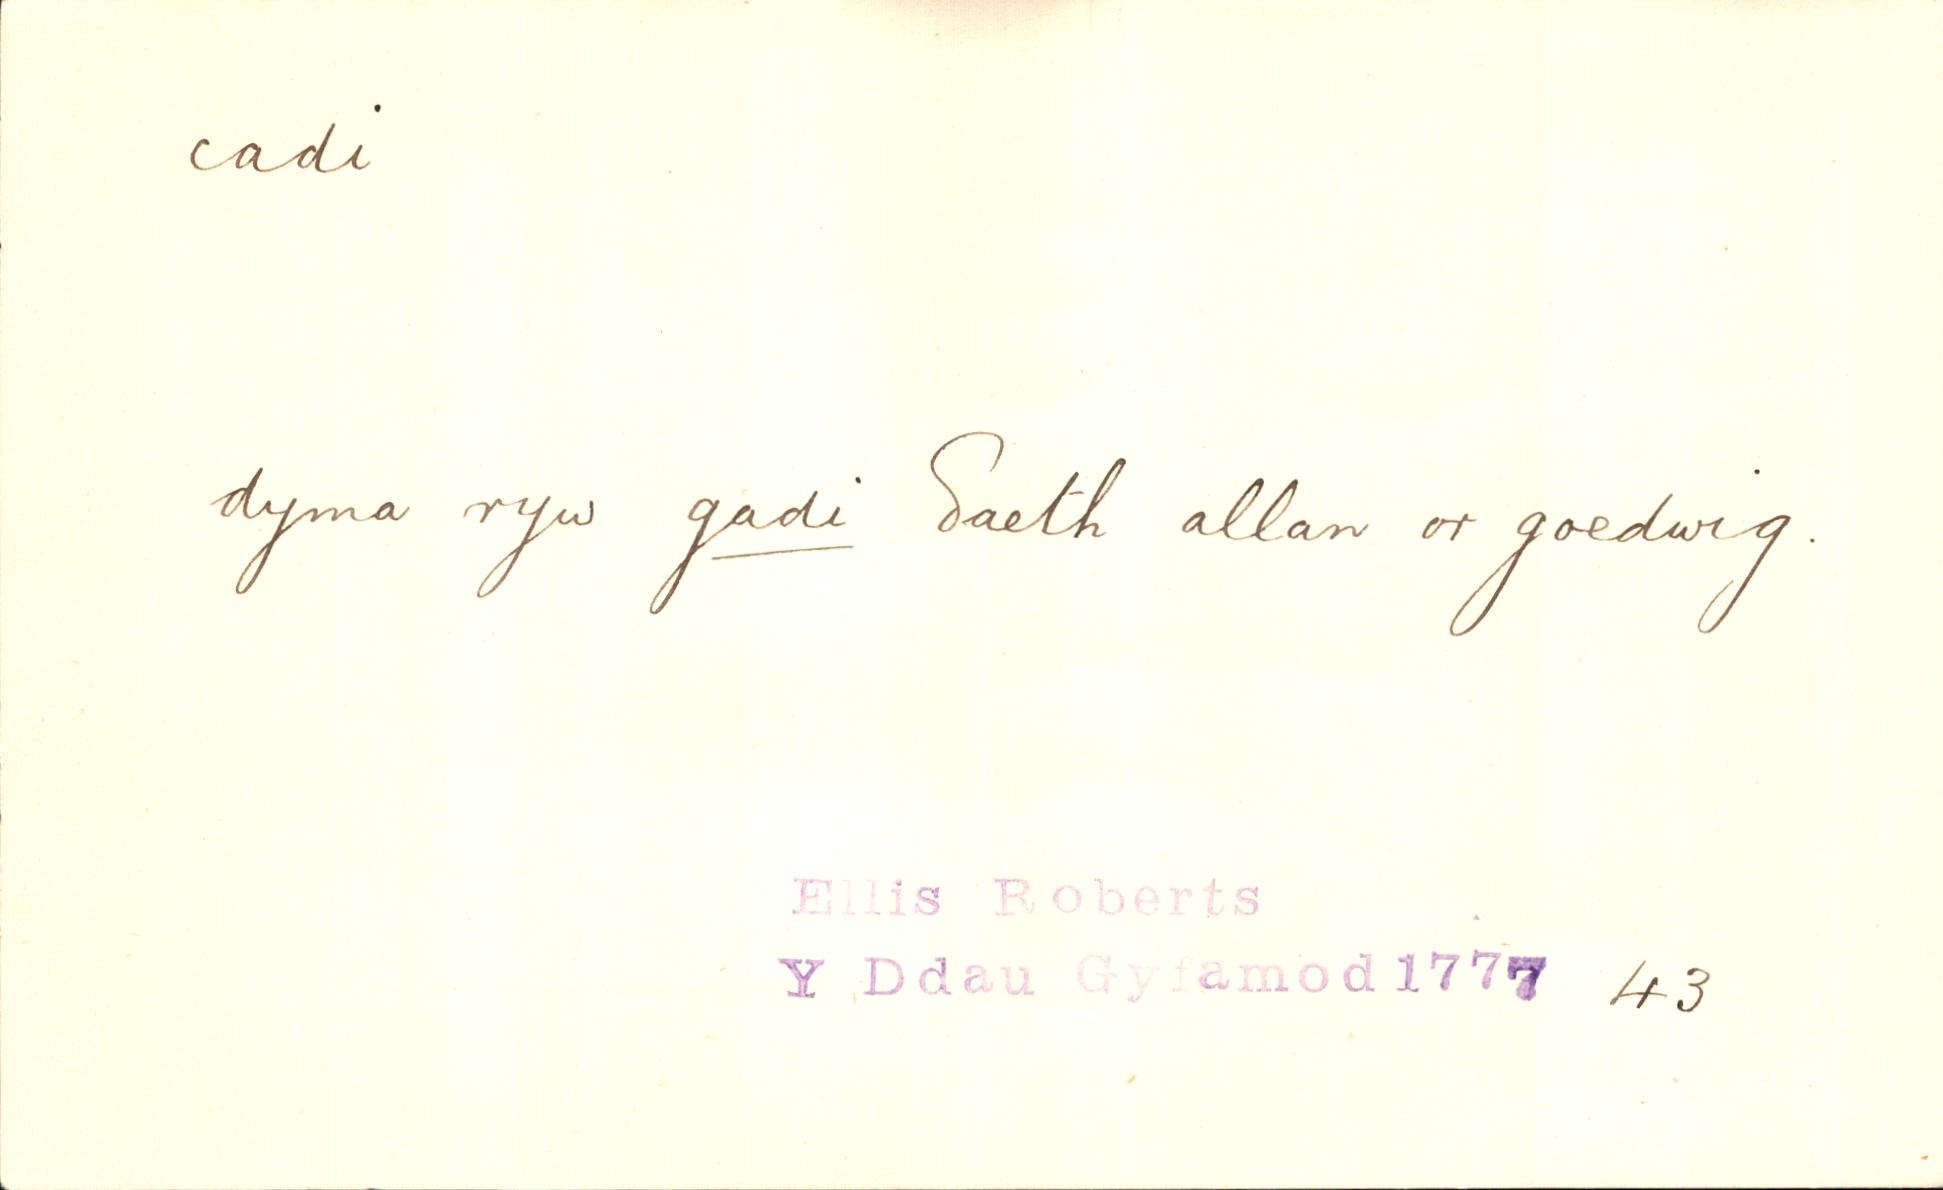 cadi
dyma ryw gadi Daeth allan or goedwig.
Ellis Roberts
Y Ddau Gyfamod 1777 43